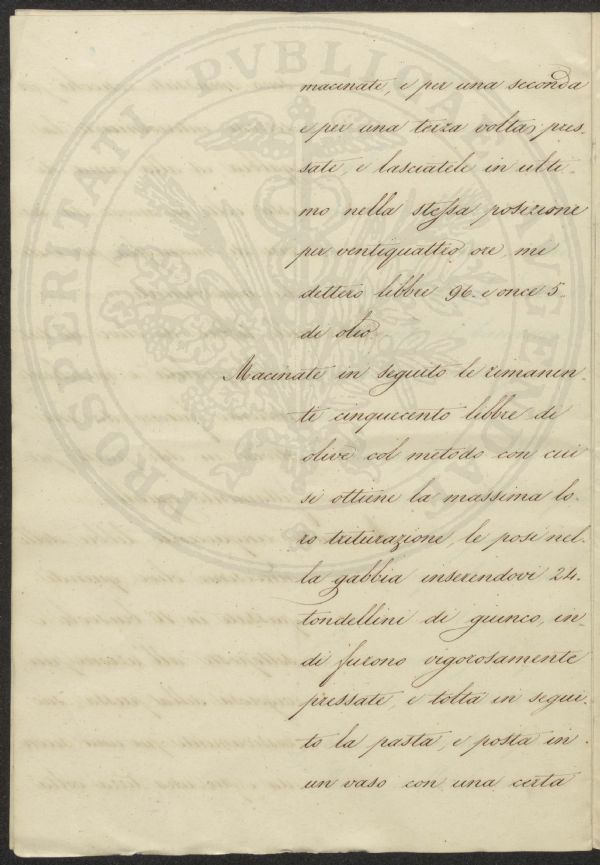 macinate, e per una seconda
e per una terza volta, pres-
sate, e lasciatele in ulti-
mo nella stessa posizione
per ventiquattro ore, mi
dettero libbre 96. e once 5.
di olio,
Macinate in seguito le rimanen-
te cinquecento libbre di
olive col metodo con cui
si ottiene la massima lo-
ro triturazione, le posi nel-
la gabbia inserendovi 24.
tondellini di giunco, in-
di furono vigorosamente
pressate, e tolta in segui-
to la pasta, e posta in
un vaso con una certa
PROSPERITATI PVBLICAE AVGENDAE